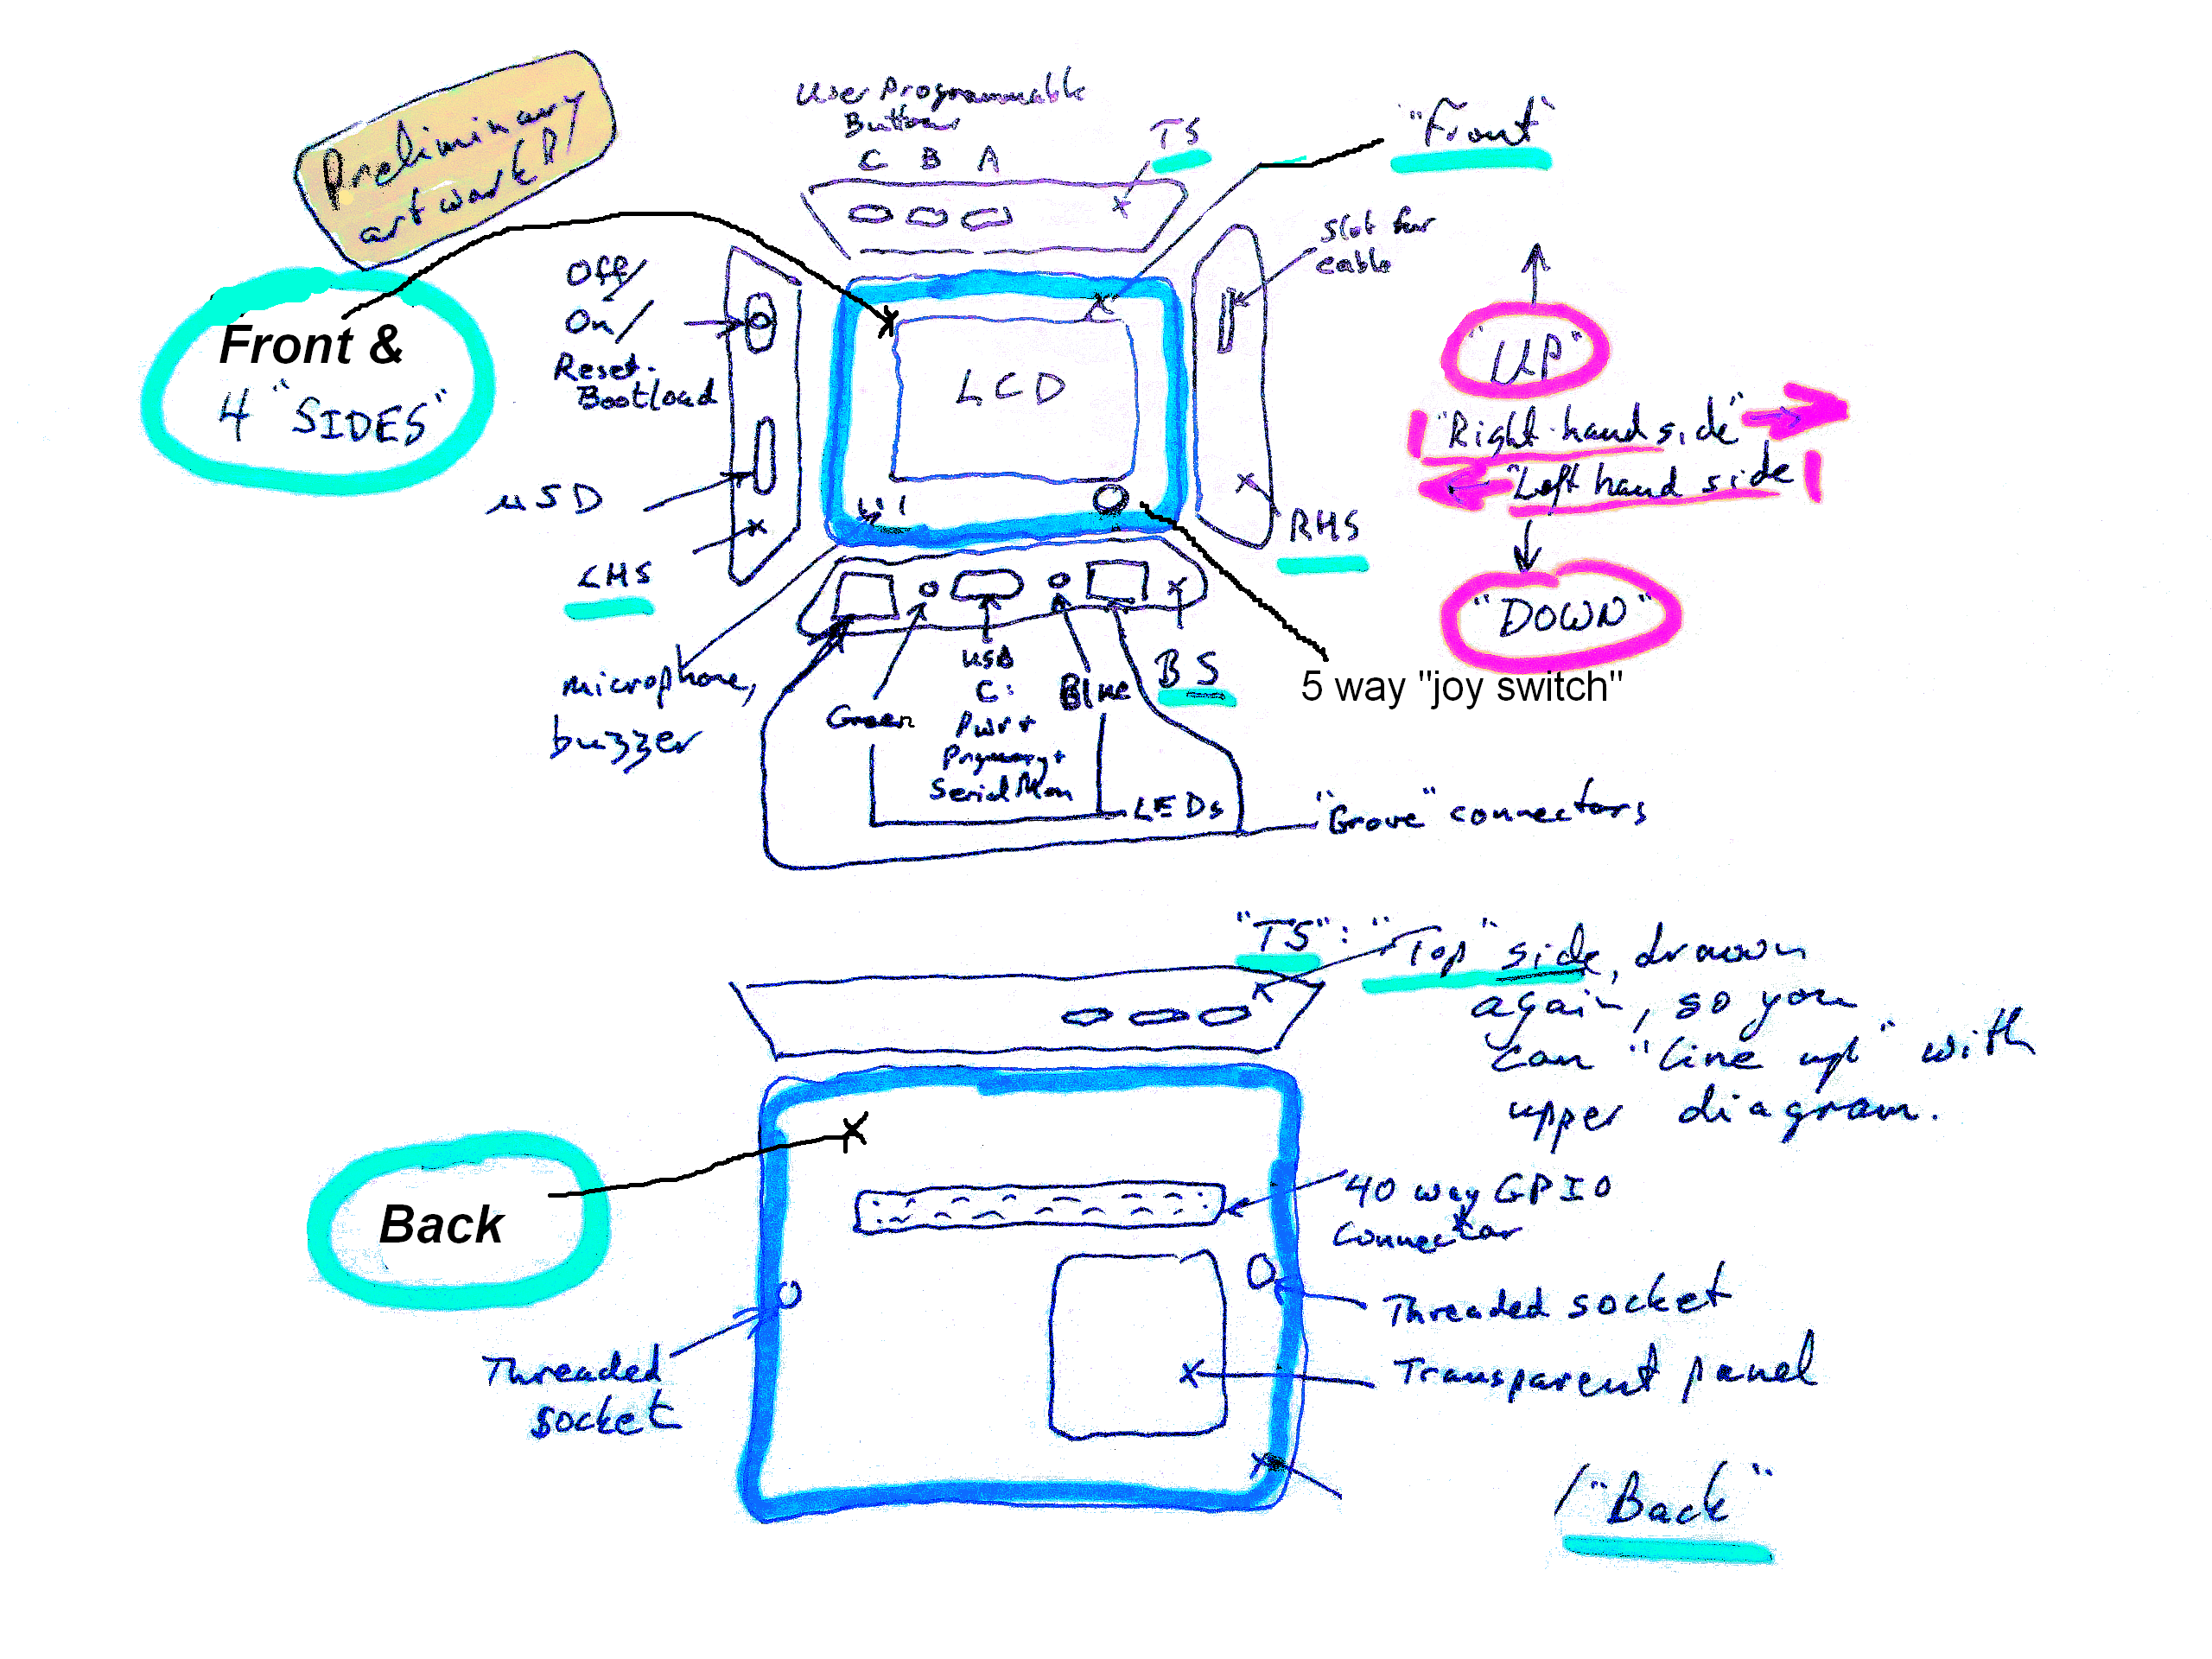 Preliminary
artwork
User Programmable
Buttons
C B A
TS
"Front"
Slot for
cable
Off/
On/
Reset.
Bootload
Front &
4 "SIDES"
LCD
"UP"
"Right hand side"
"Left hand side
"DOWN"
µSD
LHS
RHS
microphone,
buzzer
Green
USB
C:
Pwr +
Serial Mon
Blue
BS
5 way "joy switch"
LEDs
"Grove" connectors
"TS": "Top" side, drawn
again, so you
can "line up" with
upper diagram.
Back
40 way GPIO
connector
Threaded socket
Threaded
socket
Transparent panel
"Back"